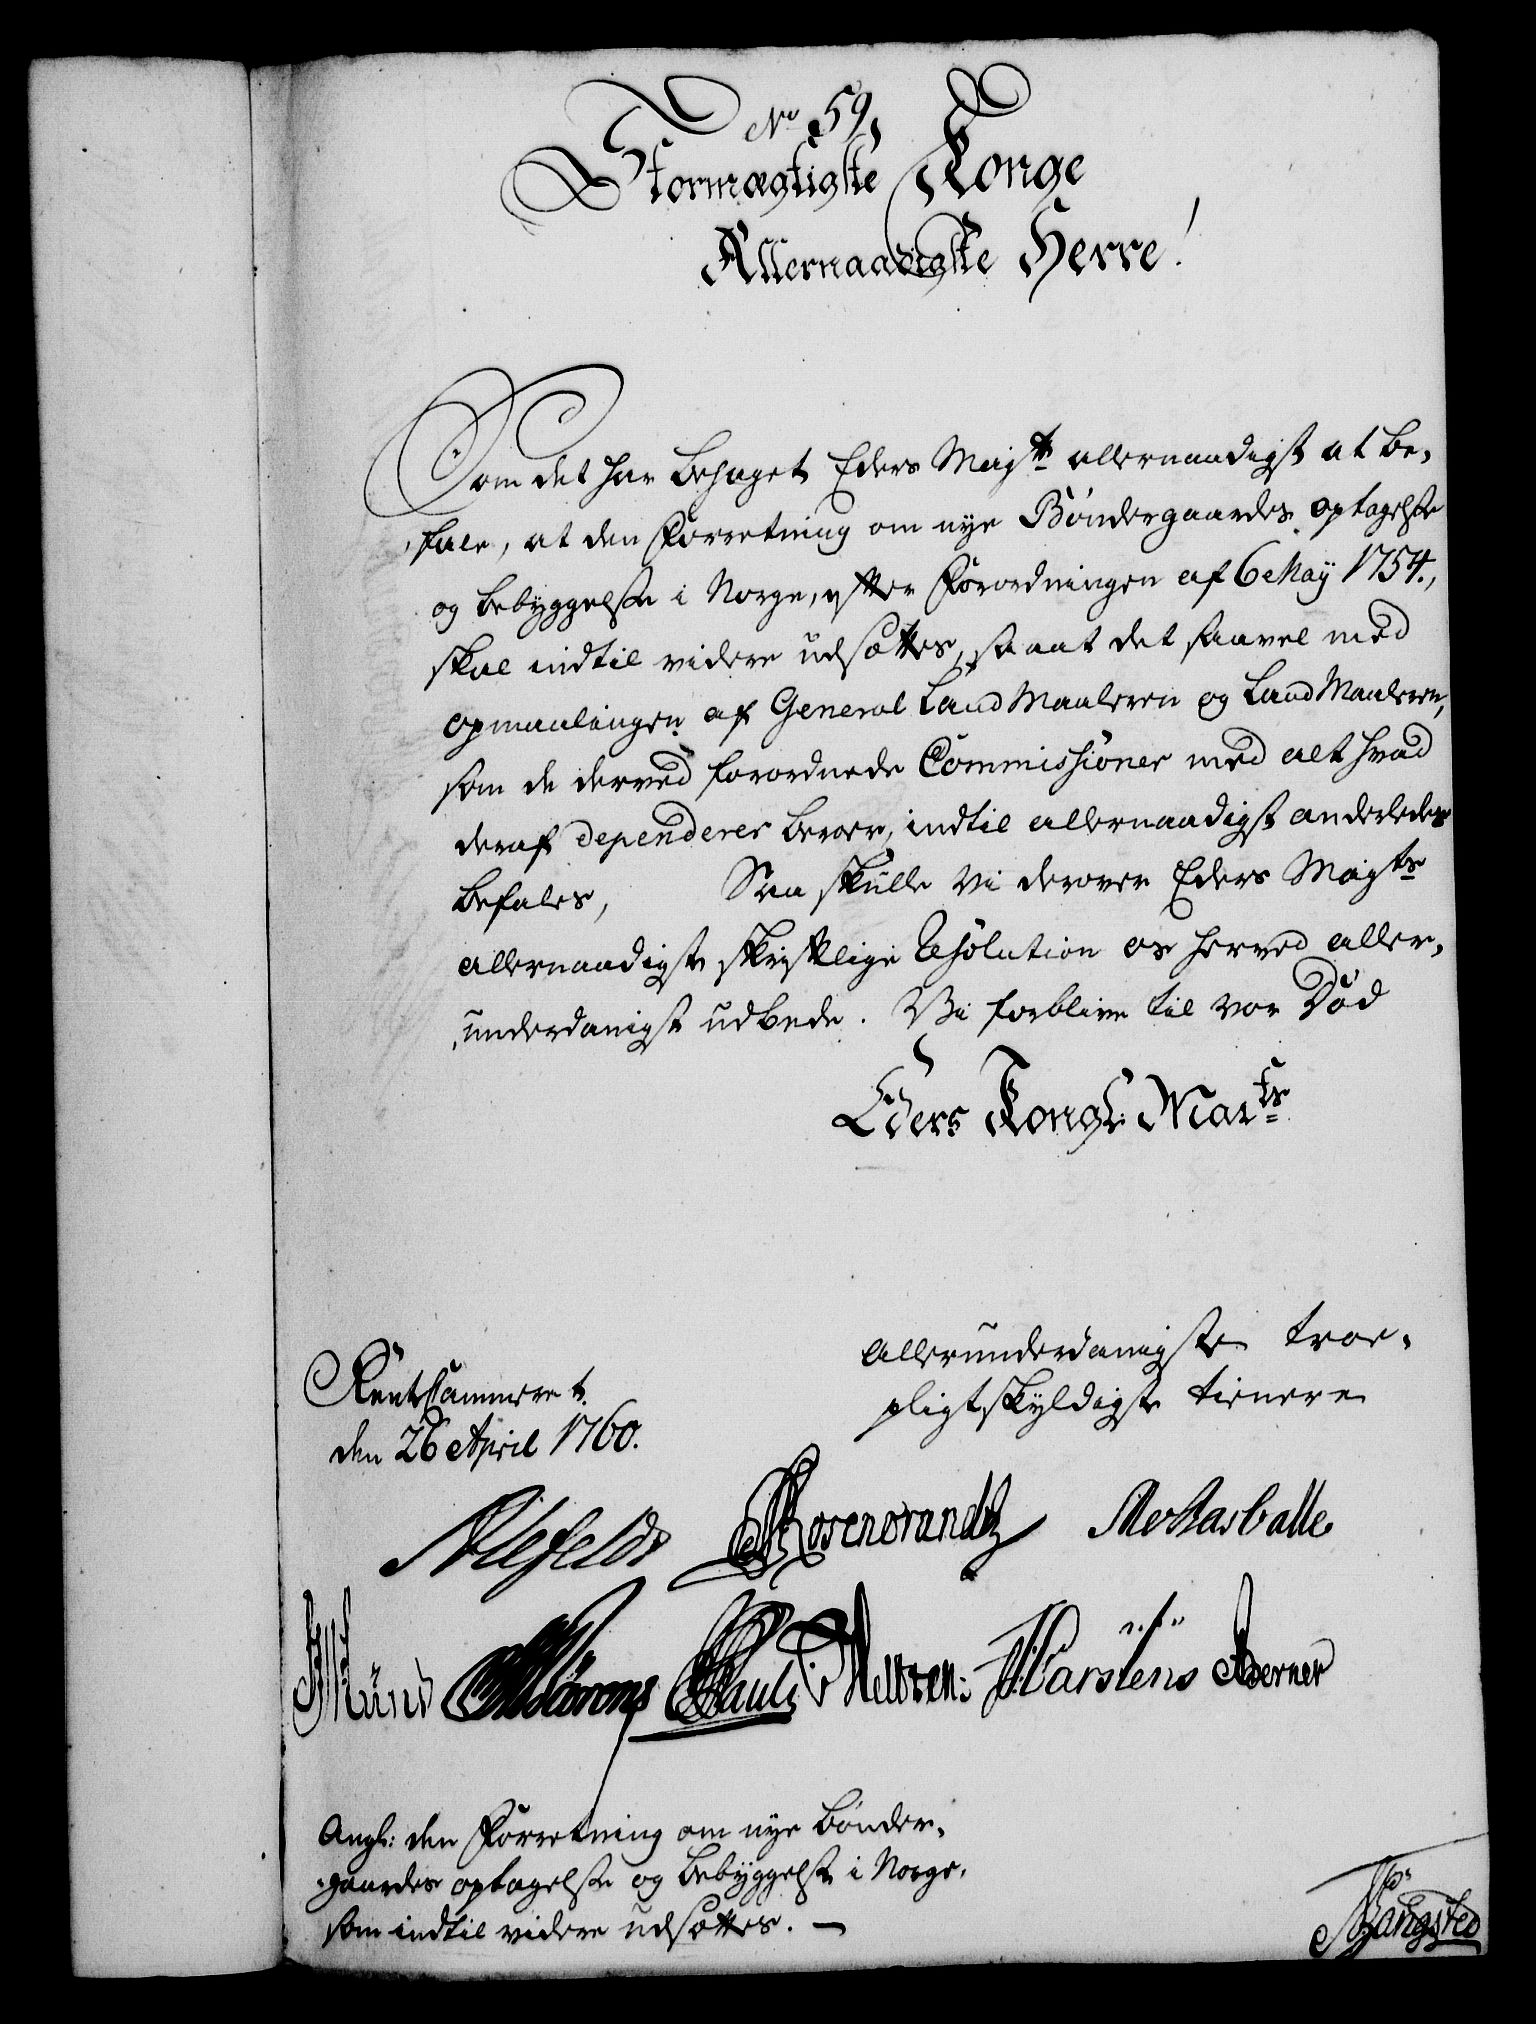 No 59,
Stormægtigste Konge
Allernaadigste Herre!
Som det har behaget Eders Mayts allernaadigst at be-
fale, at den Forretning om nye Bøndergaardes optagelse
og bebyggelse i Norge, efter Forordningen af 6 May 1754.,
skal indtil videre udsættes, saa at det saavel med
opmaalingen af General Land Maaleren og Land Maaleren,
som de derved forordnede Commissioner med alt hvad
deraf dependerer beroer, indtil allernaadigst anderledes
befales, Saa skulle vi derover Eders Mayts
allernaadigste skriftlige Resolution os herved aller-
underdanigst udbede. Vi forblive til vor Død
Eders Kongl: Mayts
Allerunderdanigste troe-
pligtskyldigste tienere
RenteCammeret
den 26 April 1760.
Alefeldt Rosencrandtz
Pauli Carstens Berner
Angl: den Forretning om nye bønder-
gaardes optagelse og bebyggelse i Norge,
som indtil videre udsættes. —
Bangsted